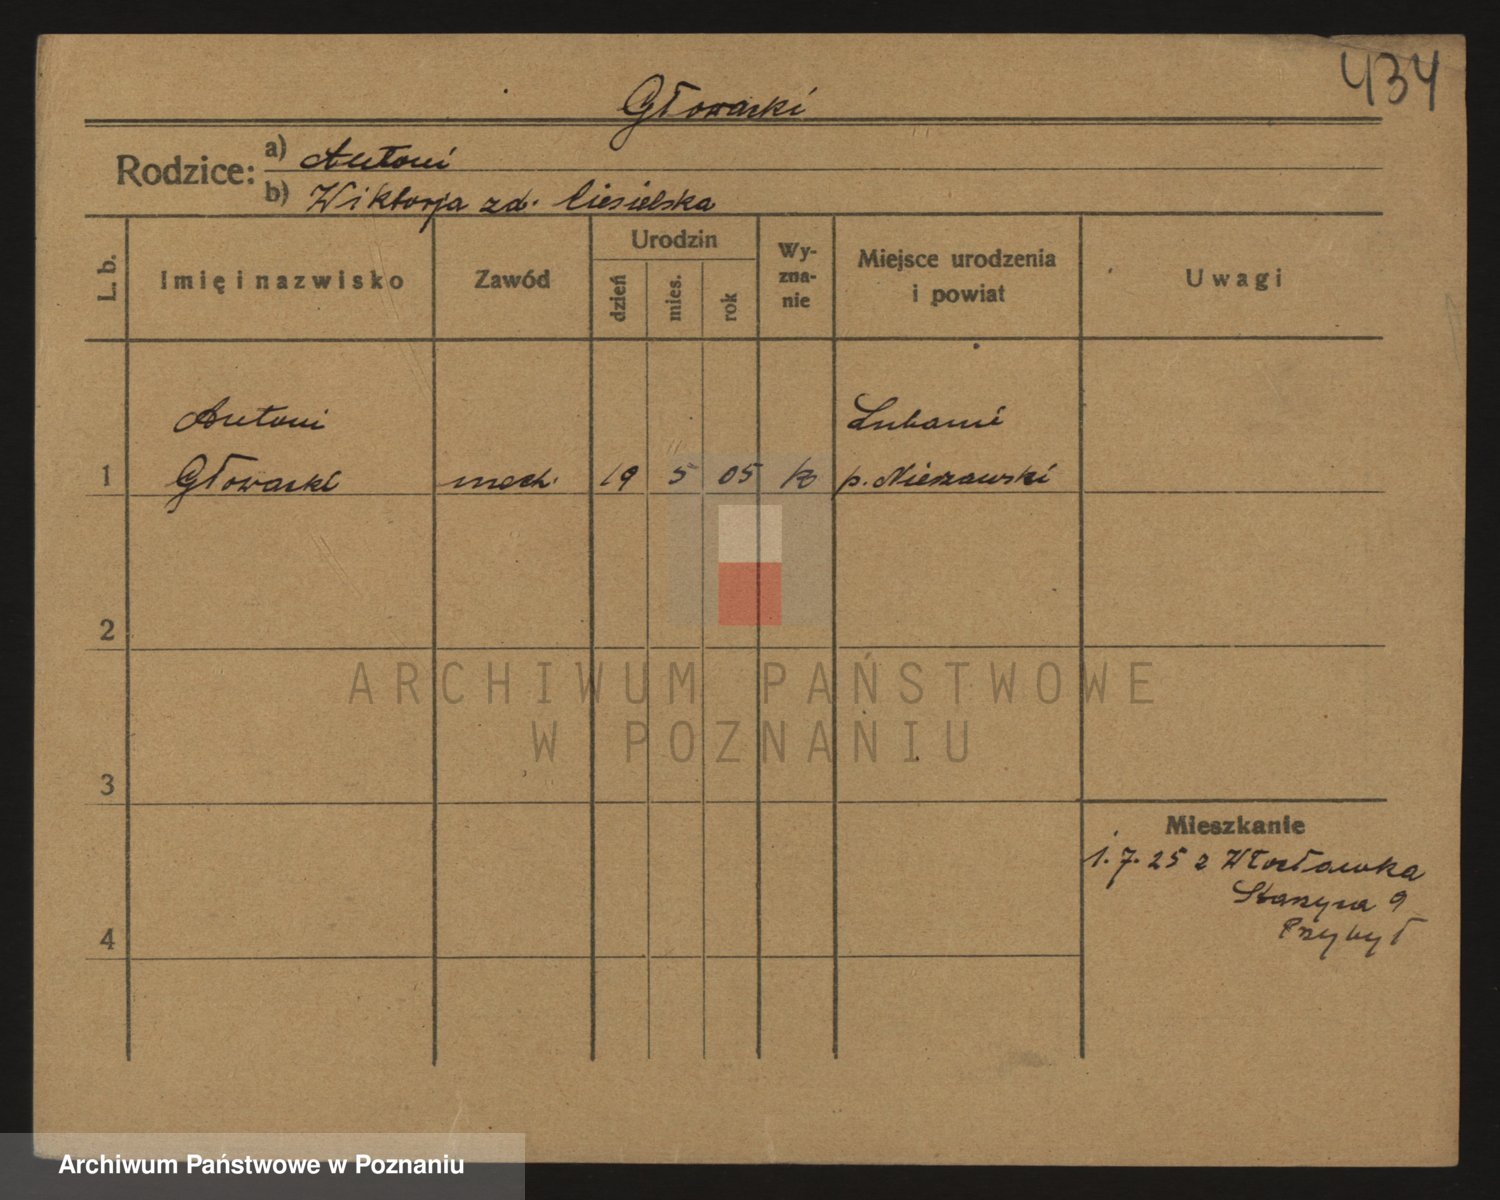 434
Głowacki
Rodzice: a) Antoni
b) Wiktorja zd. Ciesielska
L. b.
Imię i nazwisko
Zawód
Urodzin
dzień
mies.
rok
Wy-
zna-
nie
Miejsce urodzenia
i powiat
Uwagi
Antoni
Lubanie
1 Głowacki mech. 19 5 05 k p. Nieszawski
2
ARCHIWUM PAŃSTWOWE
W POZNANIU
3
Mieszkanie
1.7.25 z Włocławka
9
Przybył
4
Archiwum Państwowe w Poznaniu